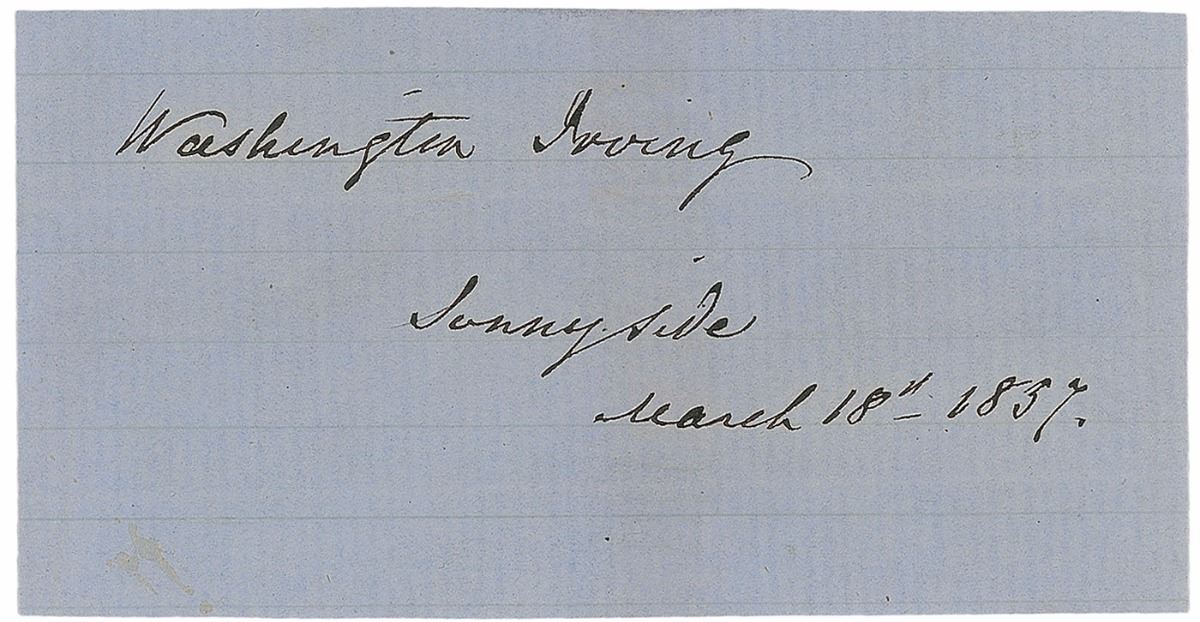 Washington Irving
Sunnyside
March 18th 1857.